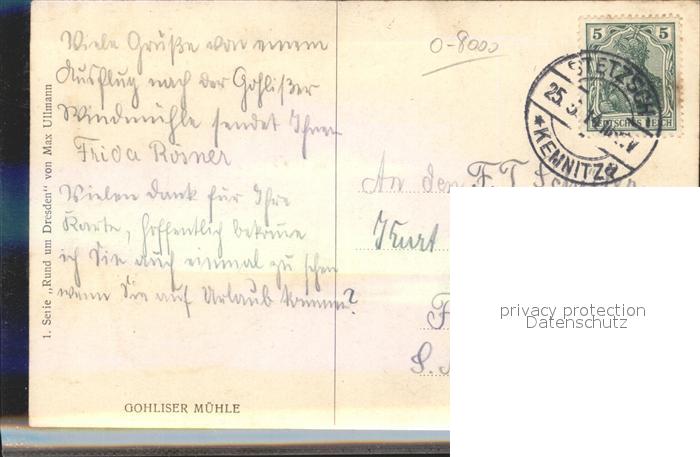 Viele Grüße von einem
Ausflug nach der Gohlißer
Windmühle sendet Ihnen
Frida Rosner
Vielen Dank für Ihre
Karte, hoffentlich bekomme
ich Sie auch einmal zu sehen
wenn Sie auf Urlaub kommen?
1. Serie „Rund um Dresden" von Max Ullmann
GOHLISER MÜHLE
0-8000
5 5
DEUTSCHES REICH
STETZSCH
25.3.
* KEMNITZ
An den F.T.
Kurt
F
S.
privacy protection
Datenschutz